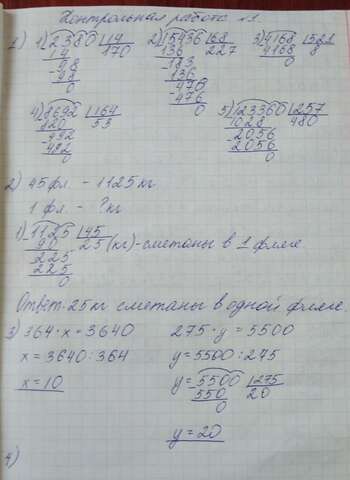 Контрольная работа №1.
1) 1) 2380 | 14 2) 15436 | 68 3) 4168 | 521
14 170 136 227 4168 8
- 98 - 183 0
98 136
0 - 476
476
0
4) 8692 | 164 5) 123360 | 257
820 53 1028 480
- 492 - 2056
492 2056
0 0
2) 45 фл. - 1125 кг
1 фл. - ? кг
1) 1125 | 45
90 25 (кг) - сметаны в 1 фляге
- 225
225
0
Ответ: 25 кг сметаны в одной фляге.
3) 364 · x = 3640 275 · y = 5500
x = 3640 : 364 y = 5500 : 275
x = 10 y = 5500 | 275
- 550 20
0
y = 20
4)